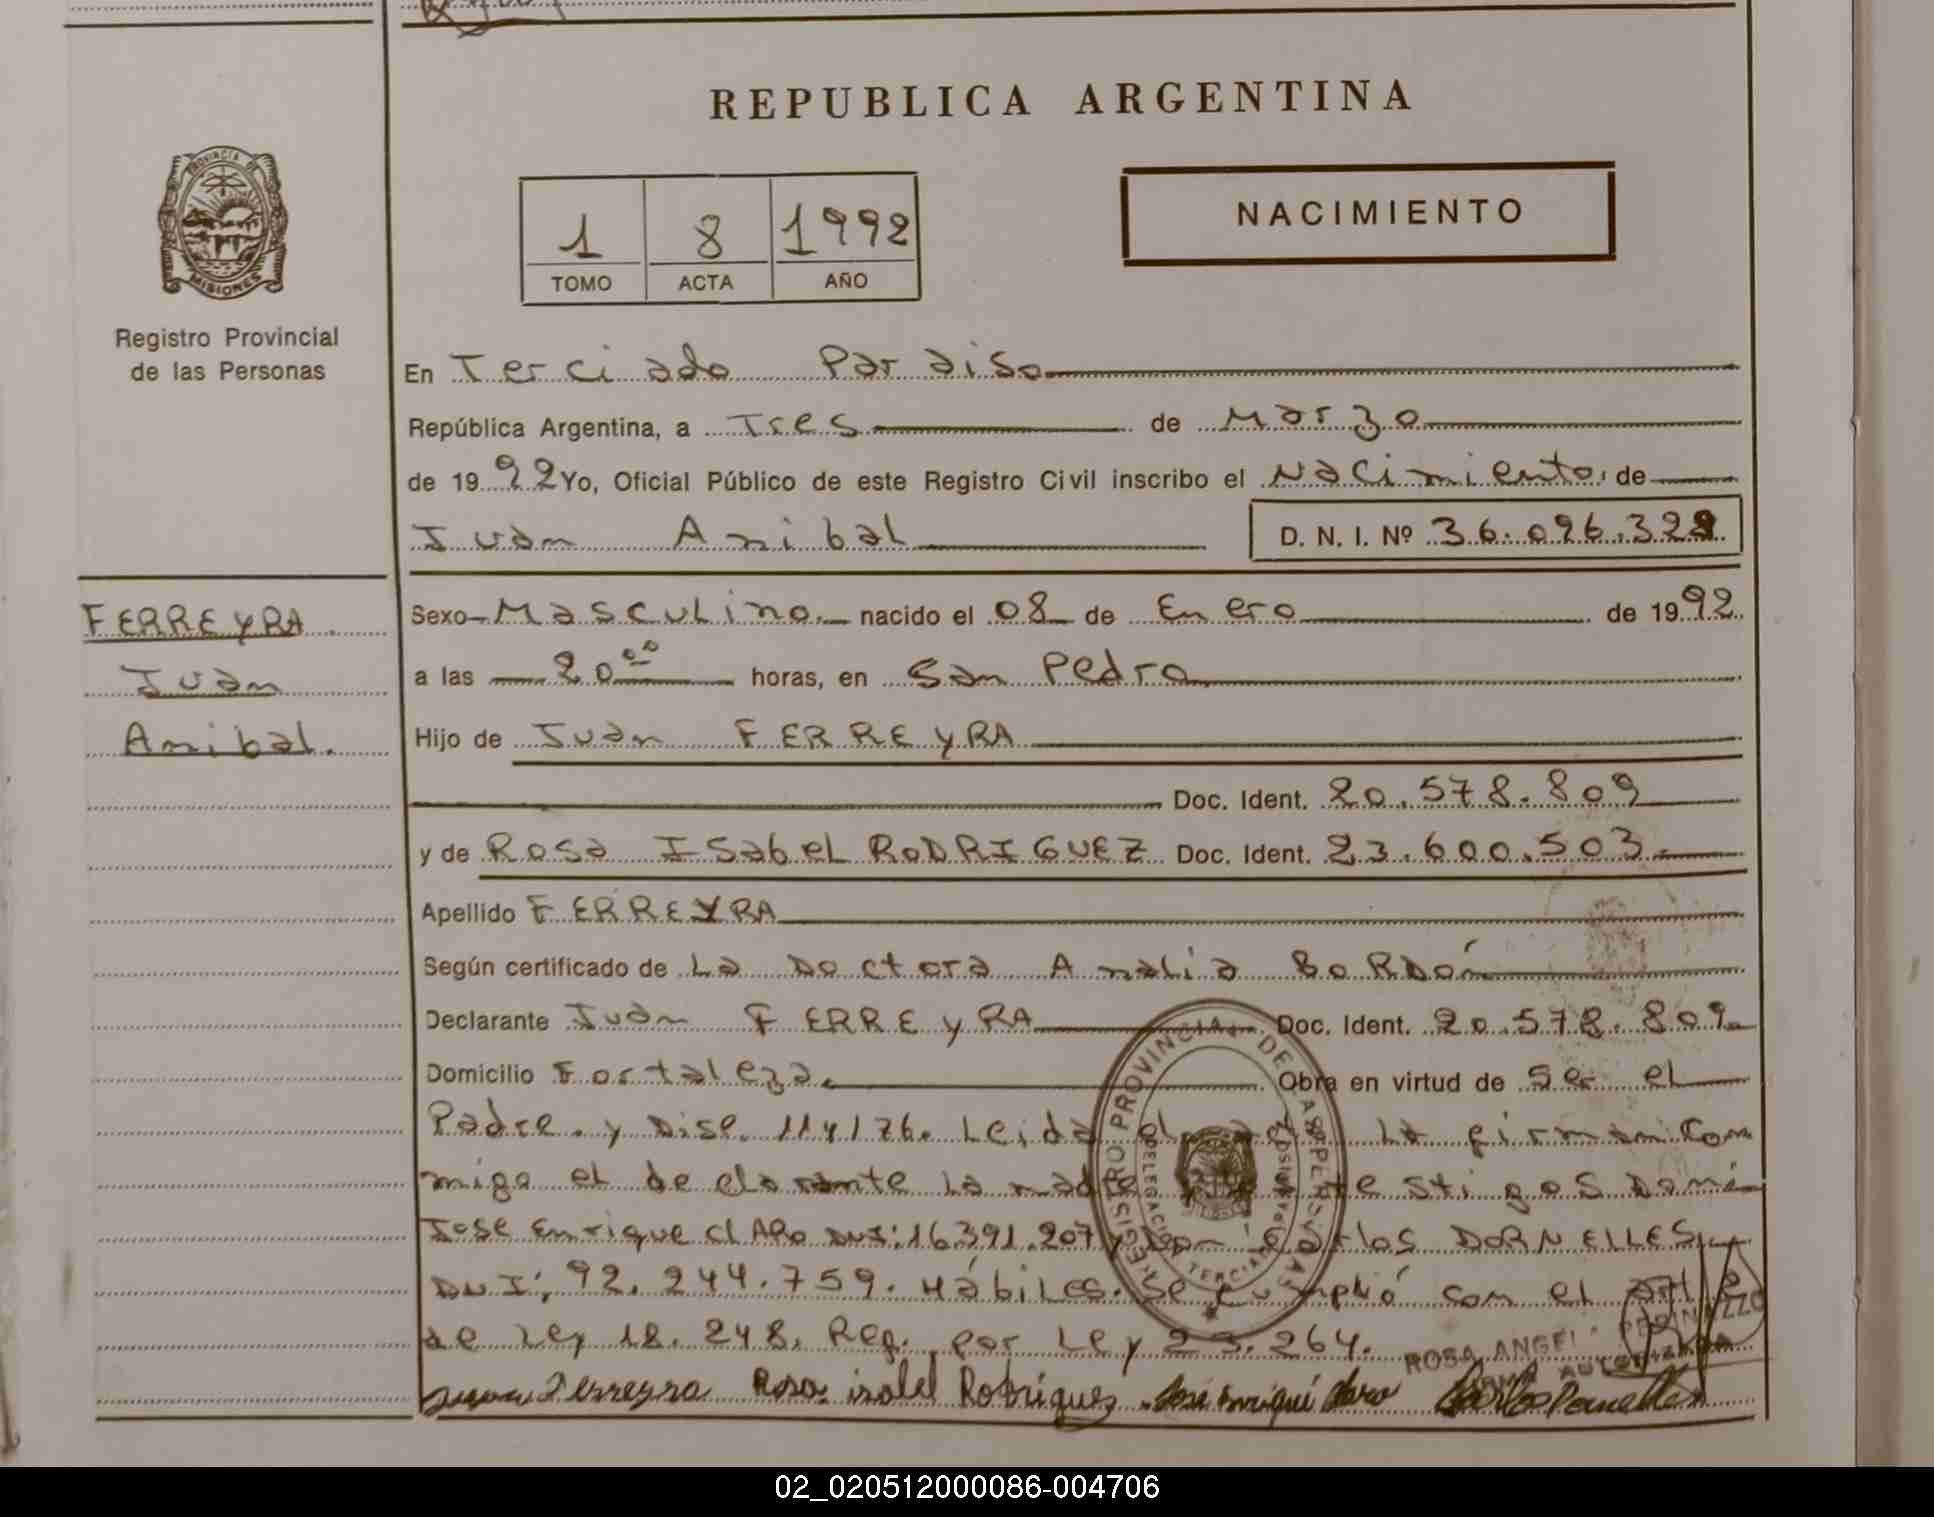 REPUBLICA ARGENTINA
PROVINCIA DE
MISIONES
Registro Provincial
de las Personas
1 8 1992
TOMO ACTA AÑO
NACIMIENTO
En Terciado Paraiso
República Argentina, a Tres de Marzo
de 1992 Yo, Oficial Público de este Registro Civil inscribo el Nacimiento de
Juan Anibal D. N. I. Nº 36.096.328
FERREYRA
Juan
Anibal.
Sexo Masculino. nacido el 08 de Enero de 1992.
a las 20°° horas, en San Pedro
Hijo de Juan FERREYRA
Doc. Ident. 20.578.809
y de Rosa Isabel RODRIGUEZ Doc. Ident. 23.600.503.
Apellido FERREYRA
Según certificado de La Doctora Analia BORDón
Declarante Juan FERREYRA Doc. Ident. 20.578.809.
Domicilio Fortaleza. Obra en virtud de Ser el
Padre. y Disp. 114/76. Leida el La firman Con
migo el declarante La madre testigos Don:
Jose Enrique ClARo DNI:16.391.207 y Don: Carlos DORNELLES
DNI: 92.244.759. Hábiles. Se cumplió con el art 2
de Ley 18.248. Ref. por Ley 23.264.
REGISTRO PROVINCIAL DE LAS PERSONAS
DELEGACION TERCIADO
ROSA
Juan Ferreyra Rosa isabel Rodriguez José Enriqui Claro Carlos Dornelles
02_020512000086-004706